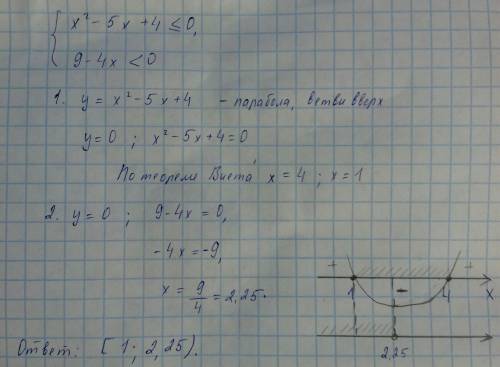 { x² - 5x + 4 ≤ 0,
9 - 4x < 0
1. y = x² - 5x + 4 - парабола, ветви вверх
y = 0 ; x² - 5x + 4 = 0
По теореме Виета x = 4 ; x = 1
2. y = 0 ; 9 - 4x = 0,
- 4x = -9,
x = 9/4 = 2,25.
+ - +
1 4 x
2,25
Ответ: [ 1 ; 2,25).